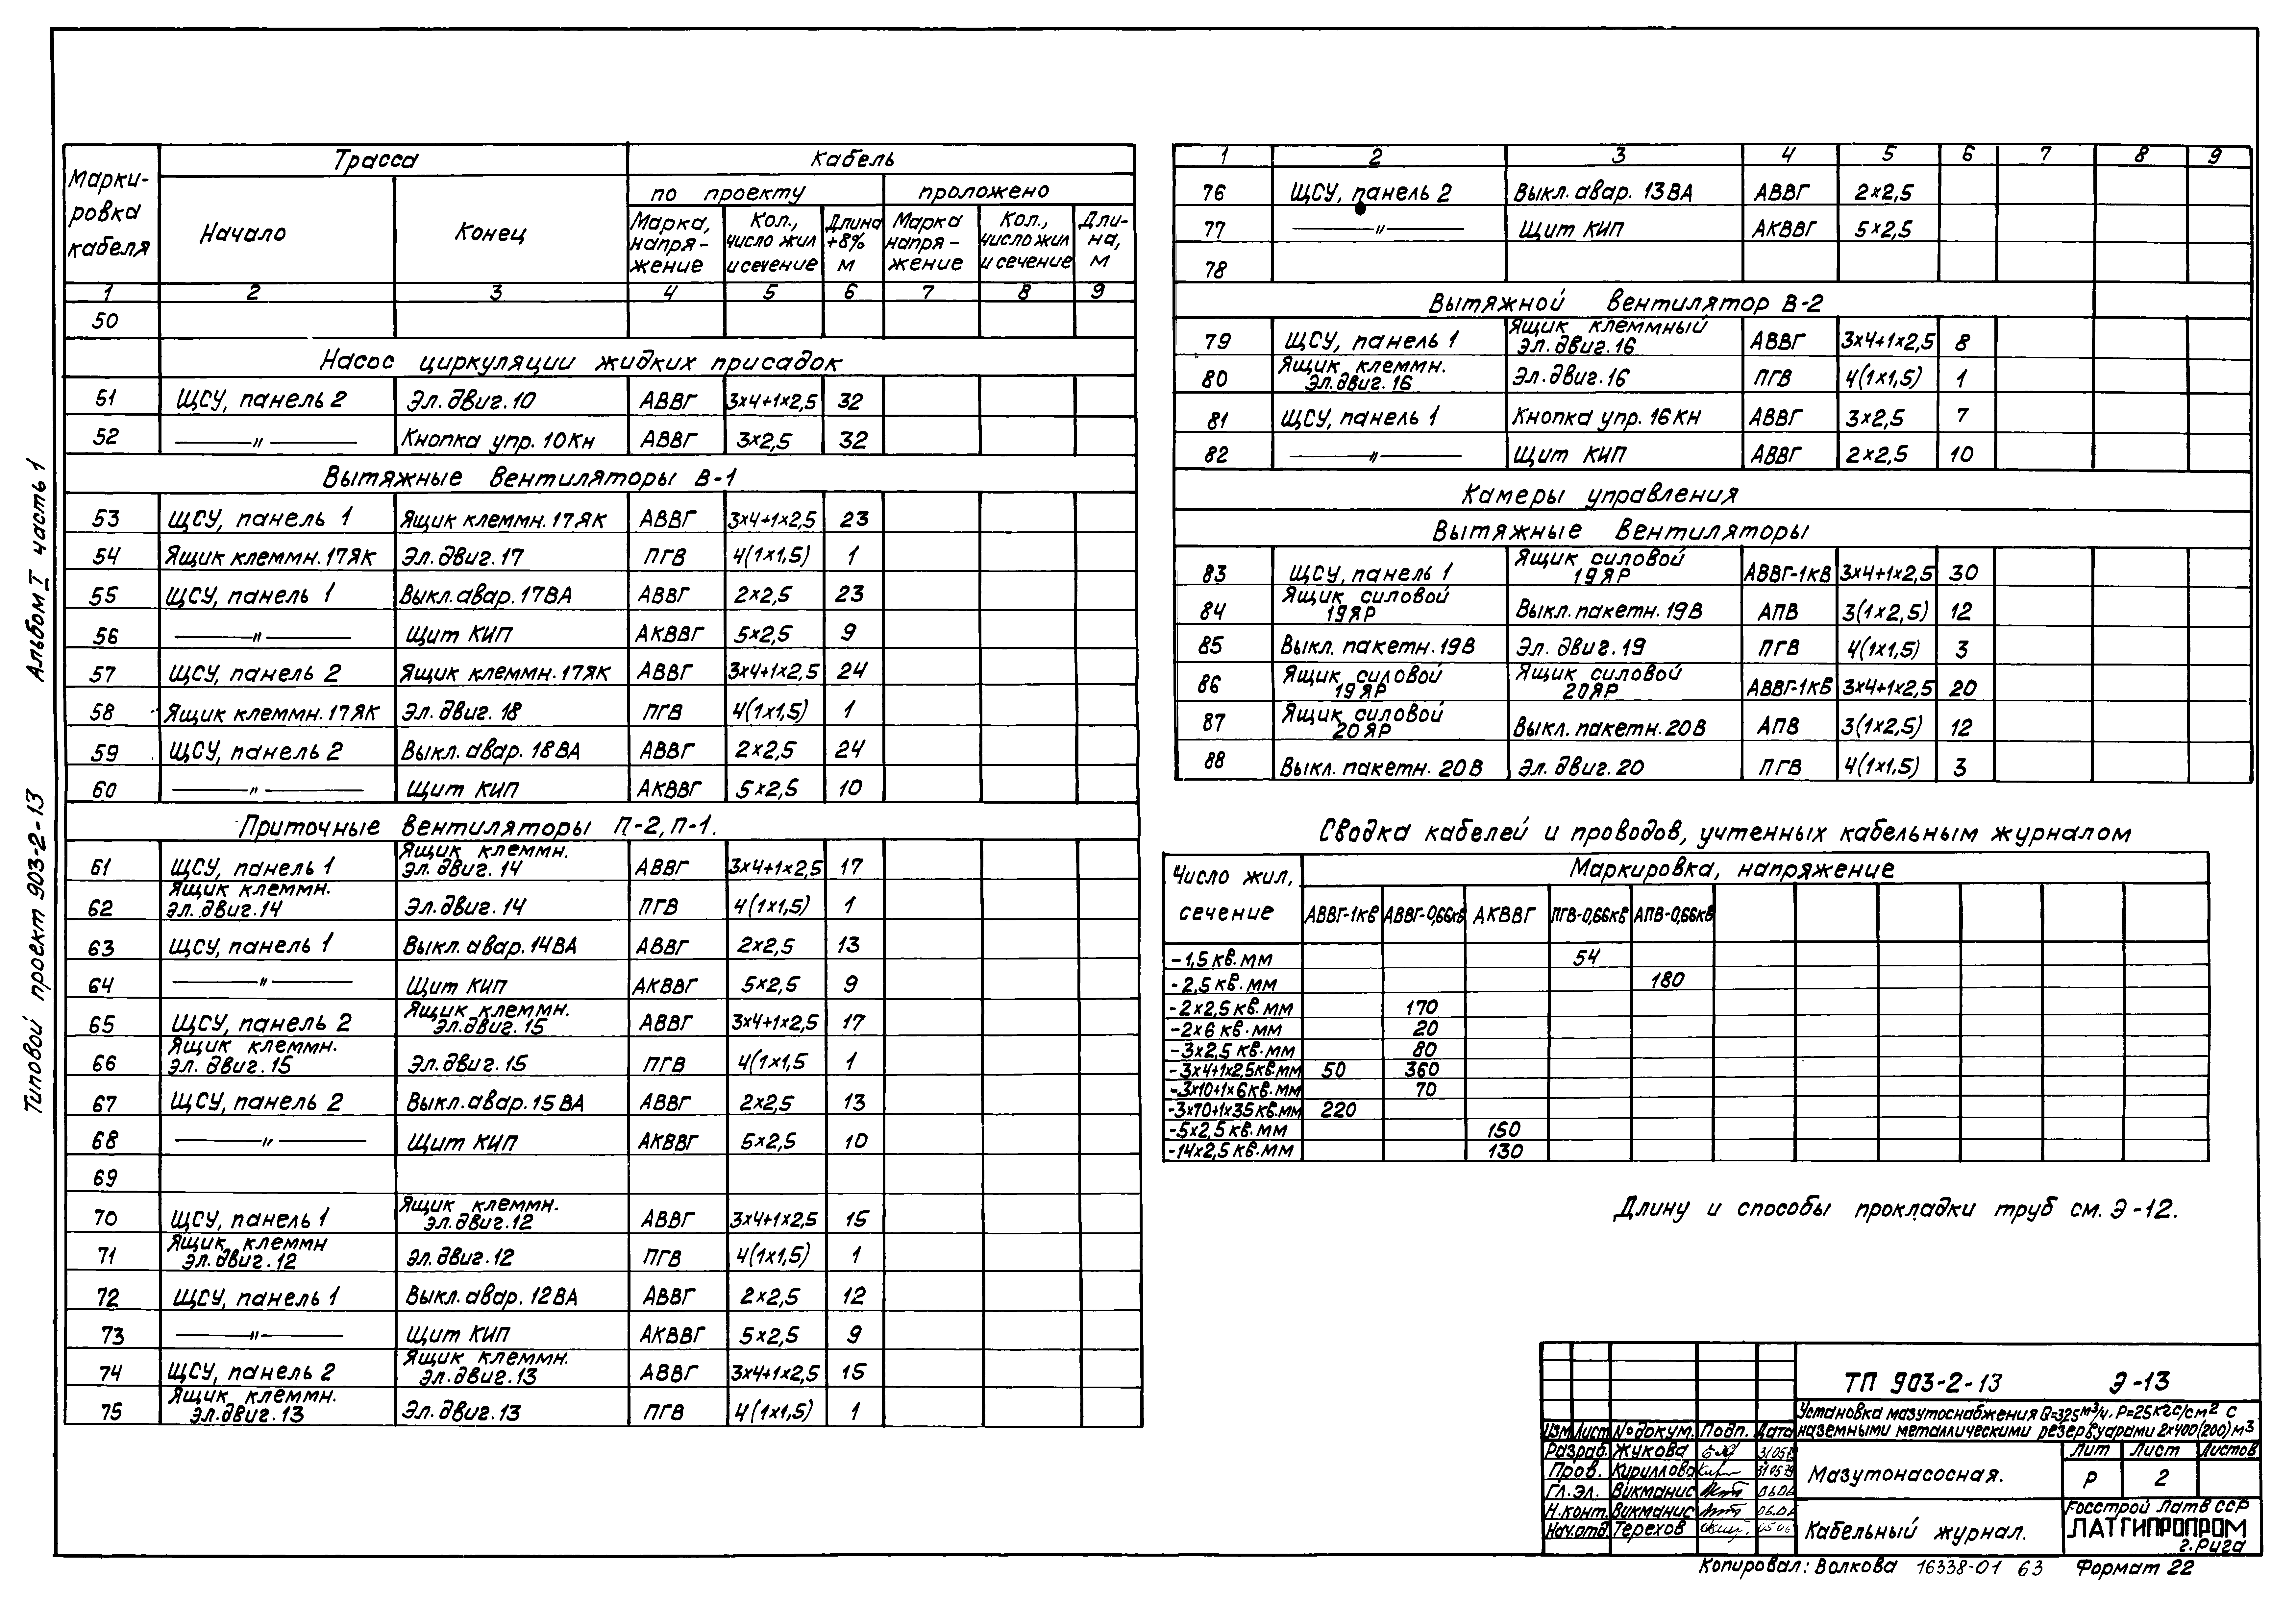 Типовой проект 903-2-13 Альбом I часть 1
Марки-ровка кабеля | Трасса | Кабель
по проекту | проложено
Начало | Конец | Марка, напря-жение | Кол., число жил и сечение | Длина +8% м | Марка напря-жение | Кол., число жил и сечение | Дли-на, м
1 | 2 | 3 | 4 | 5 | 6 | 7 | 8 | 9
50
Насос циркуляции жидких присадок
51 | ЩСУ, панель 2 | Эл. двиг. 10 | АВВГ | 3х4+1х2,5 | 32
52 | —〃— | Кнопка упр. 10Кн | АВВГ | 3х2,5 | 32
Вытяжные вентиляторы В-1
53 | ЩСУ, панель 1 | Ящик клеммн. 17ЯК | АВВГ | 3х4+1х2,5 | 23
54 | Ящик клеммн. 17ЯК | Эл. двиг. 17 | ПГВ | 4(1х1,5) | 1
55 | ЩСУ, панель 1 | Выкл. авар. 17ВА | АВВГ | 2х2,5 | 23
56 | —〃— | Щит КИП | АКВВГ | 5х2,5 | 9
57 | ЩСУ, панель 2 | Ящик клеммн. 17ЯК | АВВГ | 3х4+1х2,5 | 24
58 | Ящик клеммн. 17ЯК | Эл. двиг. 18 | ПГВ | 4(1х1,5) | 1
59 | ЩСУ, панель 2 | Выкл. авар. 18ВА | АВВГ | 2х2,5 | 24
60 | —〃— | Щит КИП | АКВВГ | 5х2,5 | 10
Приточные вентиляторы П-2, П-1.
61 | ЩСУ, панель 1 | Ящик клеммн. эл. двиг. 14 | АВВГ | 3х4+1х2,5 | 17
62 | Ящик клеммн. эл. двиг. 14 | Эл. двиг. 14 | ПГВ | 4(1х1,5) | 1
63 | ЩСУ, панель 1 | Выкл. авар. 14ВА | АВВГ | 2х2,5 | 13
64 | —〃— | Щит КИП | АКВВГ | 5х2,5 | 9
65 | ЩСУ, панель 2 | Ящик клеммн. эл. двиг. 15 | АВВГ | 3х4+1х2,5 | 17
66 | Ящик клеммн. эл. двиг. 15 | Эл. двиг. 15 | ПГВ | 4(1х1,5 | 1
67 | ЩСУ, панель 2 | Выкл. авар. 15ВА | АВВГ | 2х2,5 | 13
68 | —〃— | Щит КИП | АКВВГ | 5х2,5 | 10
69
70 | ЩСУ, панель 1 | Ящик клеммн. эл. двиг. 12 | АВВГ | 3х4+1х2,5 | 15
71 | Ящик клеммн эл. двиг. 12 | Эл. двиг. 12 | ПГВ | 4(1х1,5) | 1
72 | ЩСУ, панель 1 | Выкл. авар. 12ВА | АВВГ | 2х2,5 | 12
73 | —〃— | Щит КИП | АКВВГ | 5х2,5 | 9
74 | ЩСУ, панель 2 | Ящик клеммн. эл. двиг. 13 | АВВГ | 3х4+1х2,5 | 15
75 | Ящик клеммн. эл. двиг. 13 | Эл. двиг. 13 | ПГВ | 4(1х1,5) | 1
1 | 2 | 3 | 4 | 5 | 6 | 7 | 8 | 9
76 | ЩСУ, панель 2 | Выкл. авар. 13ВА | АВВГ | 2х2,5
77 | —〃— | Щит КИП | АКВВГ | 5х2,5
78
Вытяжной вентилятор В-2
79 | ЩСУ, панель 1 | Ящик клеммный эл. двиг. 16 | АВВГ | 3х4+1х2,5 | 8
80 | Ящик клеммн. эл. двиг. 16 | Эл. двиг. 16 | ПГВ | 4(1х1,5) | 1
81 | ЩСУ, панель 1 | Кнопка упр. 16Кн | АВВГ | 3х2,5 | 7
82 | —〃— | Щит КИП | АВВГ | 2х2,5 | 10
Камеры управления
Вытяжные вентиляторы
83 | ЩСУ, панель 1 | Ящик силовой 19ЯР | АВВГ-1кв | 3х4+1х2,5 | 30
84 | Ящик силовой 19ЯР | Выкл. пакетн. 19В | АПВ | 3(1х2,5) | 12
85 | Выкл. пакетн. 19В | Эл. двиг. 19 | ПГВ | 4(1х1,5) | 3
86 | Ящик силовой 19ЯР | Ящик силовой 20ЯР | АВВГ-1кв | 3х4+1х2,5 | 20
87 | Ящик силовой 20ЯР | Выкл. пакетн. 20В | АПВ | 3(1х2,5) | 12
88 | Выкл. пакетн. 20В | Эл. двиг. 20 | ПГВ | 4(1х1,5) | 3
Сводка кабелей и проводов, учтенных кабельным журналом
Число жил, сечение | Маркировка, напряжение
АВВГ-1кв | АВВГ-0,66кв | АКВВГ | ПГВ-0,66кв | АПВ-0,66кв
-1,5 кв. мм | 54
-2,5 кв. мм | 180
-2х2,5 кв. мм | 170
-2х6 кв. мм | 20
-3х2,5 кв. мм | 80
-3х4+1х2,5кв. мм | 50 | 360
-3х10+1х6кв. мм | 70
-3х70+1х35кв. мм | 220
-5х2,5 кв. мм | 150
-14х2,5 кв. мм | 130
Длину и способы прокладки труб см. Э-12.
ТП 903-2-13 Э-13
Установка мазутоснабжения Q=325м³/ч. Р=25кгс/см² с
наземными металлическими резервуарами 2х400(200)м³
Изм | Лист | № докум. | Подп. | Дата
Разраб. | Жукова | 31.05.79
Пров. | Кириллова | 31.05.79
Гл. эл. | Викманис
Н. контр. | Викманис
Нач. отд. | Терехов
Мазутонасосная.
Лит | Лист | Листов
Р | 2
Кабельный журнал.
Госстрой Латв ССР
ЛАТГИПРОПРОМ
г. Рига
Копировал: Волкова 16338-01 63 Формат 22